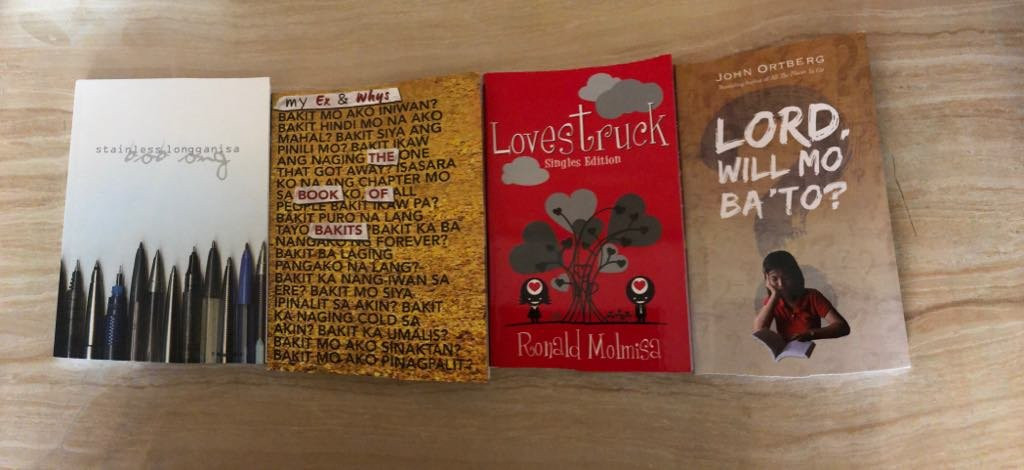 stainless longganisa
bob ong
my Ex & Whys
BAKIT MO AKO INIWAN?
BAKIT HINDI MO NA AKO
MAHAL? BAKIT SIYA ANG
PINILI MO? BAKIT IKAW
ANG NAGING THE ONE
THAT GOT AWAY? ISASARA
KO NA ANG CHAPTER MO
SA BOOK KO, OF ALL
PEOPLE BAKIT IKAW PA?
BAKIT PURO NA LANG
TAYO BAKITS BAKIT KA BA
NANGAKO FOREVER?
BAKIT BA LAGING
PANGAKO NA LANG?
BAKIT KA NANG-IWAN SA
ERE? BAKIT MO SIYA
IPINALIT SA AKIN? BAKIT
KA NAGING COLD SA
AKIN? BAKIT KA UMALIS?
BAKIT MO AKO SINAKTAN?
BAKIT MO AKO PINAGPALIT?
Lovestruck
Singles Edition
Ronald Molmisa
JOHN ORTBERG
LORD,
WILL MO
BA'TO?